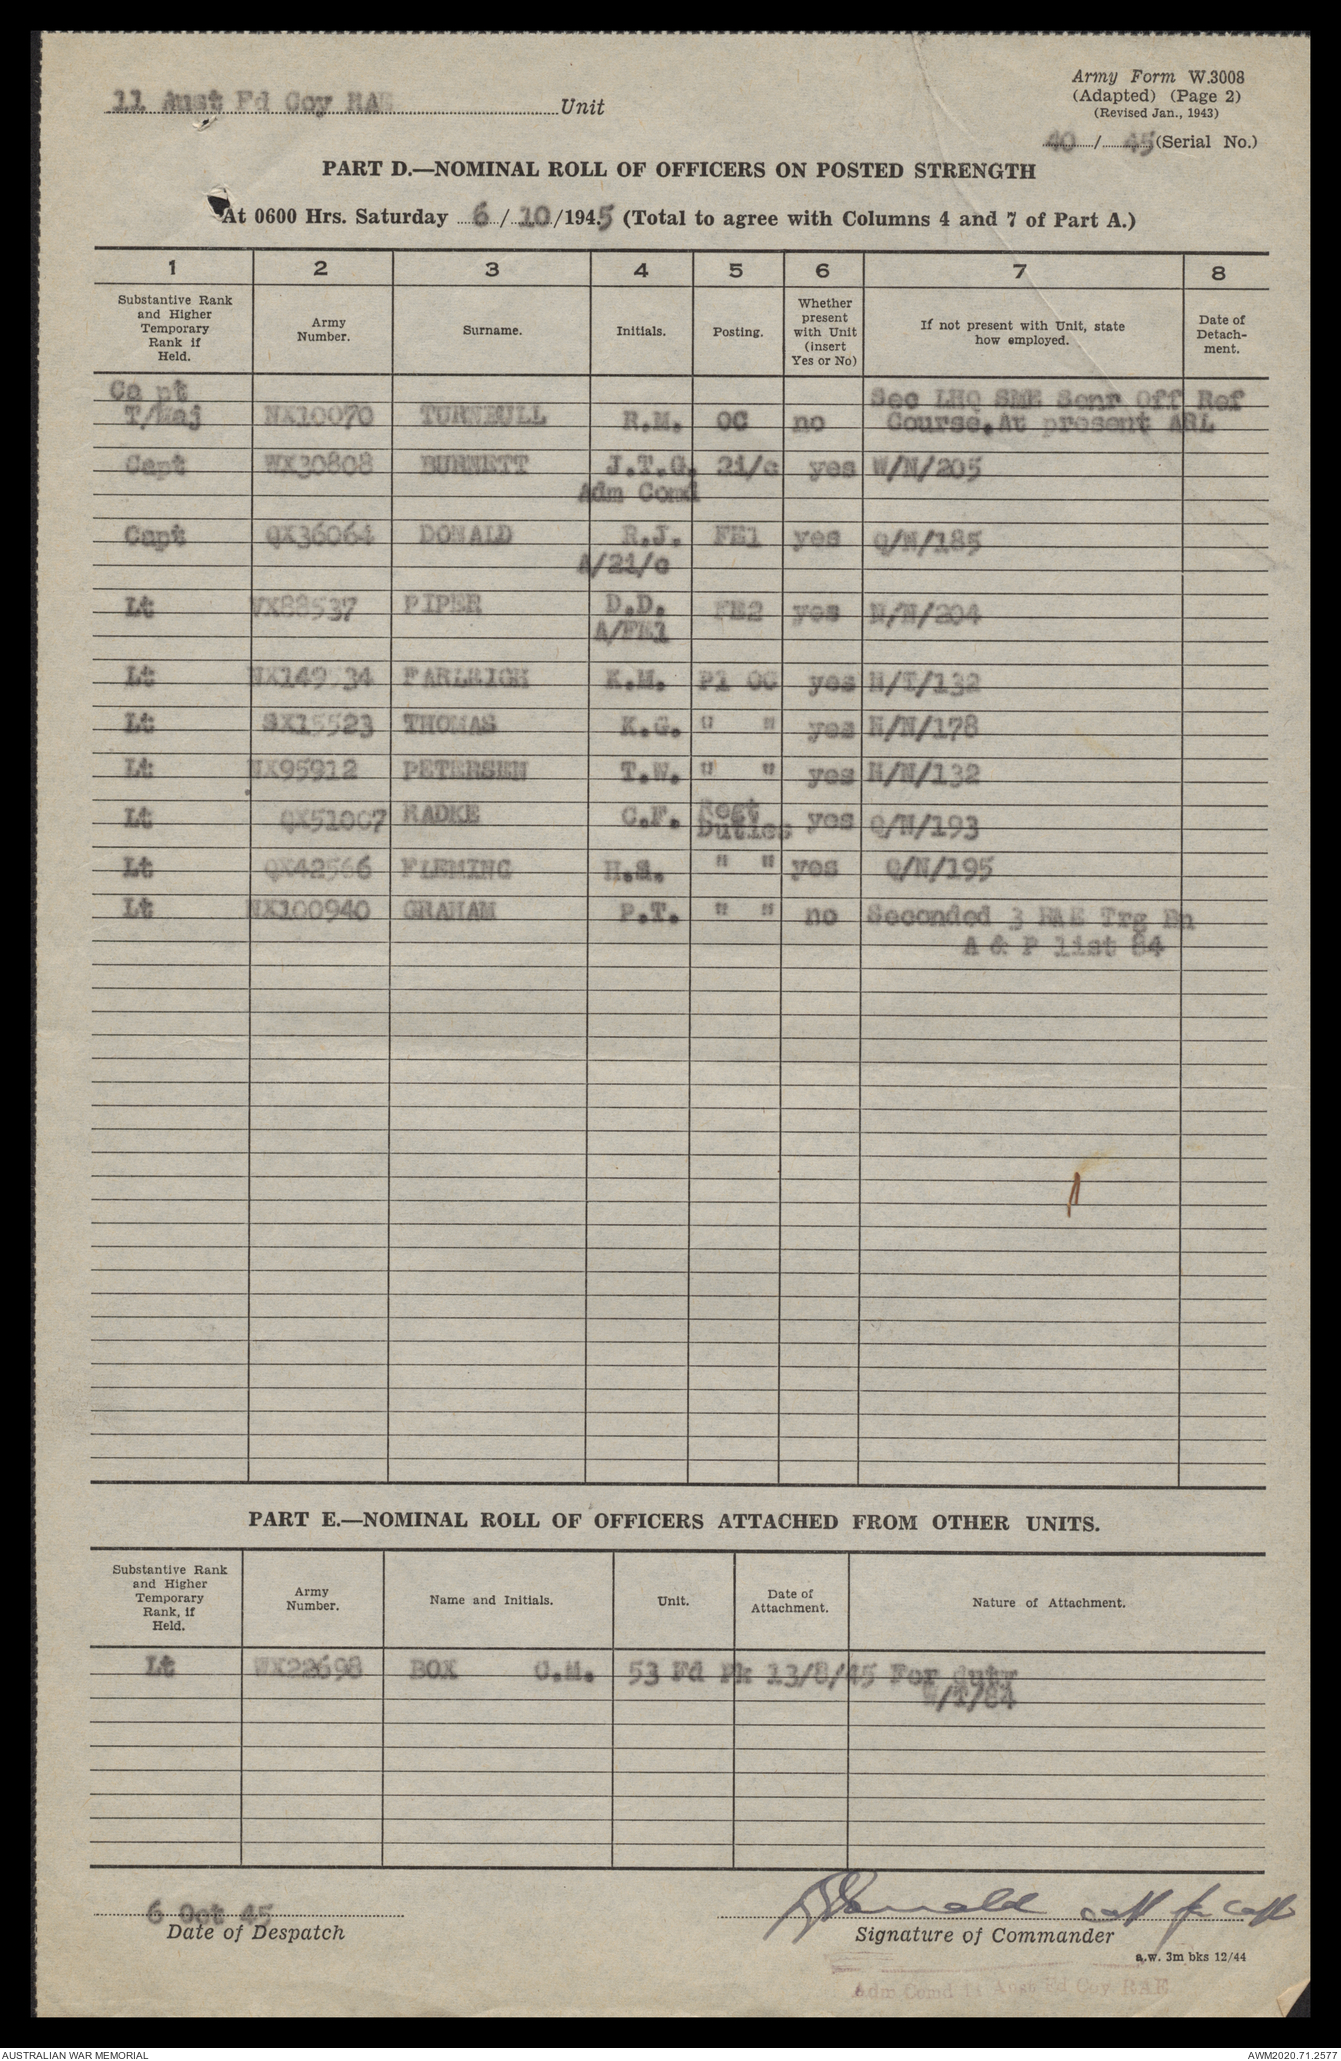 Army Form W.3008
11 Aust Fd Coy RAE Unit
(Adapted) (Page 2)
(Revised Jan., 1943)
40/45 (Serial No.)
PART D.—NOMINAL ROLL OF OFFICERS ON POSTED STRENGTH
At 0600 Hrs. Saturday 6/10/1945 (Total to agree with Columns 4 and 7 of Part A.)
1 2 3 4 5 6 7 8
Substantive Rank and Higher Temporary Rank if Held.
Army Number.
Surname.
Initials.
Posting.
Whether present with Unit (insert Yes or No)
If not present with Unit, state how employed.
Date of Detachment.
Ca pt Sec LHQ SME Senr Off Ref
T/Maj NX10070 TURNBULL R.M. OC no Course.At present ARL
Capt WX30808 BURNETT J.T.G. 2i/c yes W/N/205
Adm Comd
Capt QX36064 DONALD R.J. FE1 yes Q/N/185
A/2i/c
Lt VX88537 PIPER D.D. FE2 yes N/N/204
A/FE1
Lt NX149534 FARLEIGH K.M. Pl OC yes N/T/132
Lt SX15523 THOMAS K.G. " " yes N/N/178
Lt NX95912 PETERSEN T.W. " " yes N/N/132
Lt QX51007 RADKE C.F. Regt Duties yes Q/N/193
Lt QX42566 FLEMING H.S. " " yes Q/N/195
Lt NX100940 GRAHAM P.T. " " no Seconded 3 RAE Trg Bn
A & P list 84
PART E.—NOMINAL ROLL OF OFFICERS ATTACHED FROM OTHER UNITS.
Substantive Rank and Higher Temporary Rank, if Held.
Army Number.
Name and Initials.
Unit.
Date of Attachment.
Nature of Attachment.
Lt WX22698 BOX C.M. 53 Fd Pk 13/8/45 For duty
W/T/84
6 Oct 45
Date of Despatch
RJDonald capt for capt
Signature of Commander
a.w. 3m bks 12/44
Adm Comd 11 Aust Fd Coy RAE
AUSTRALIAN WAR MEMORIAL
AWM2020.71.2577